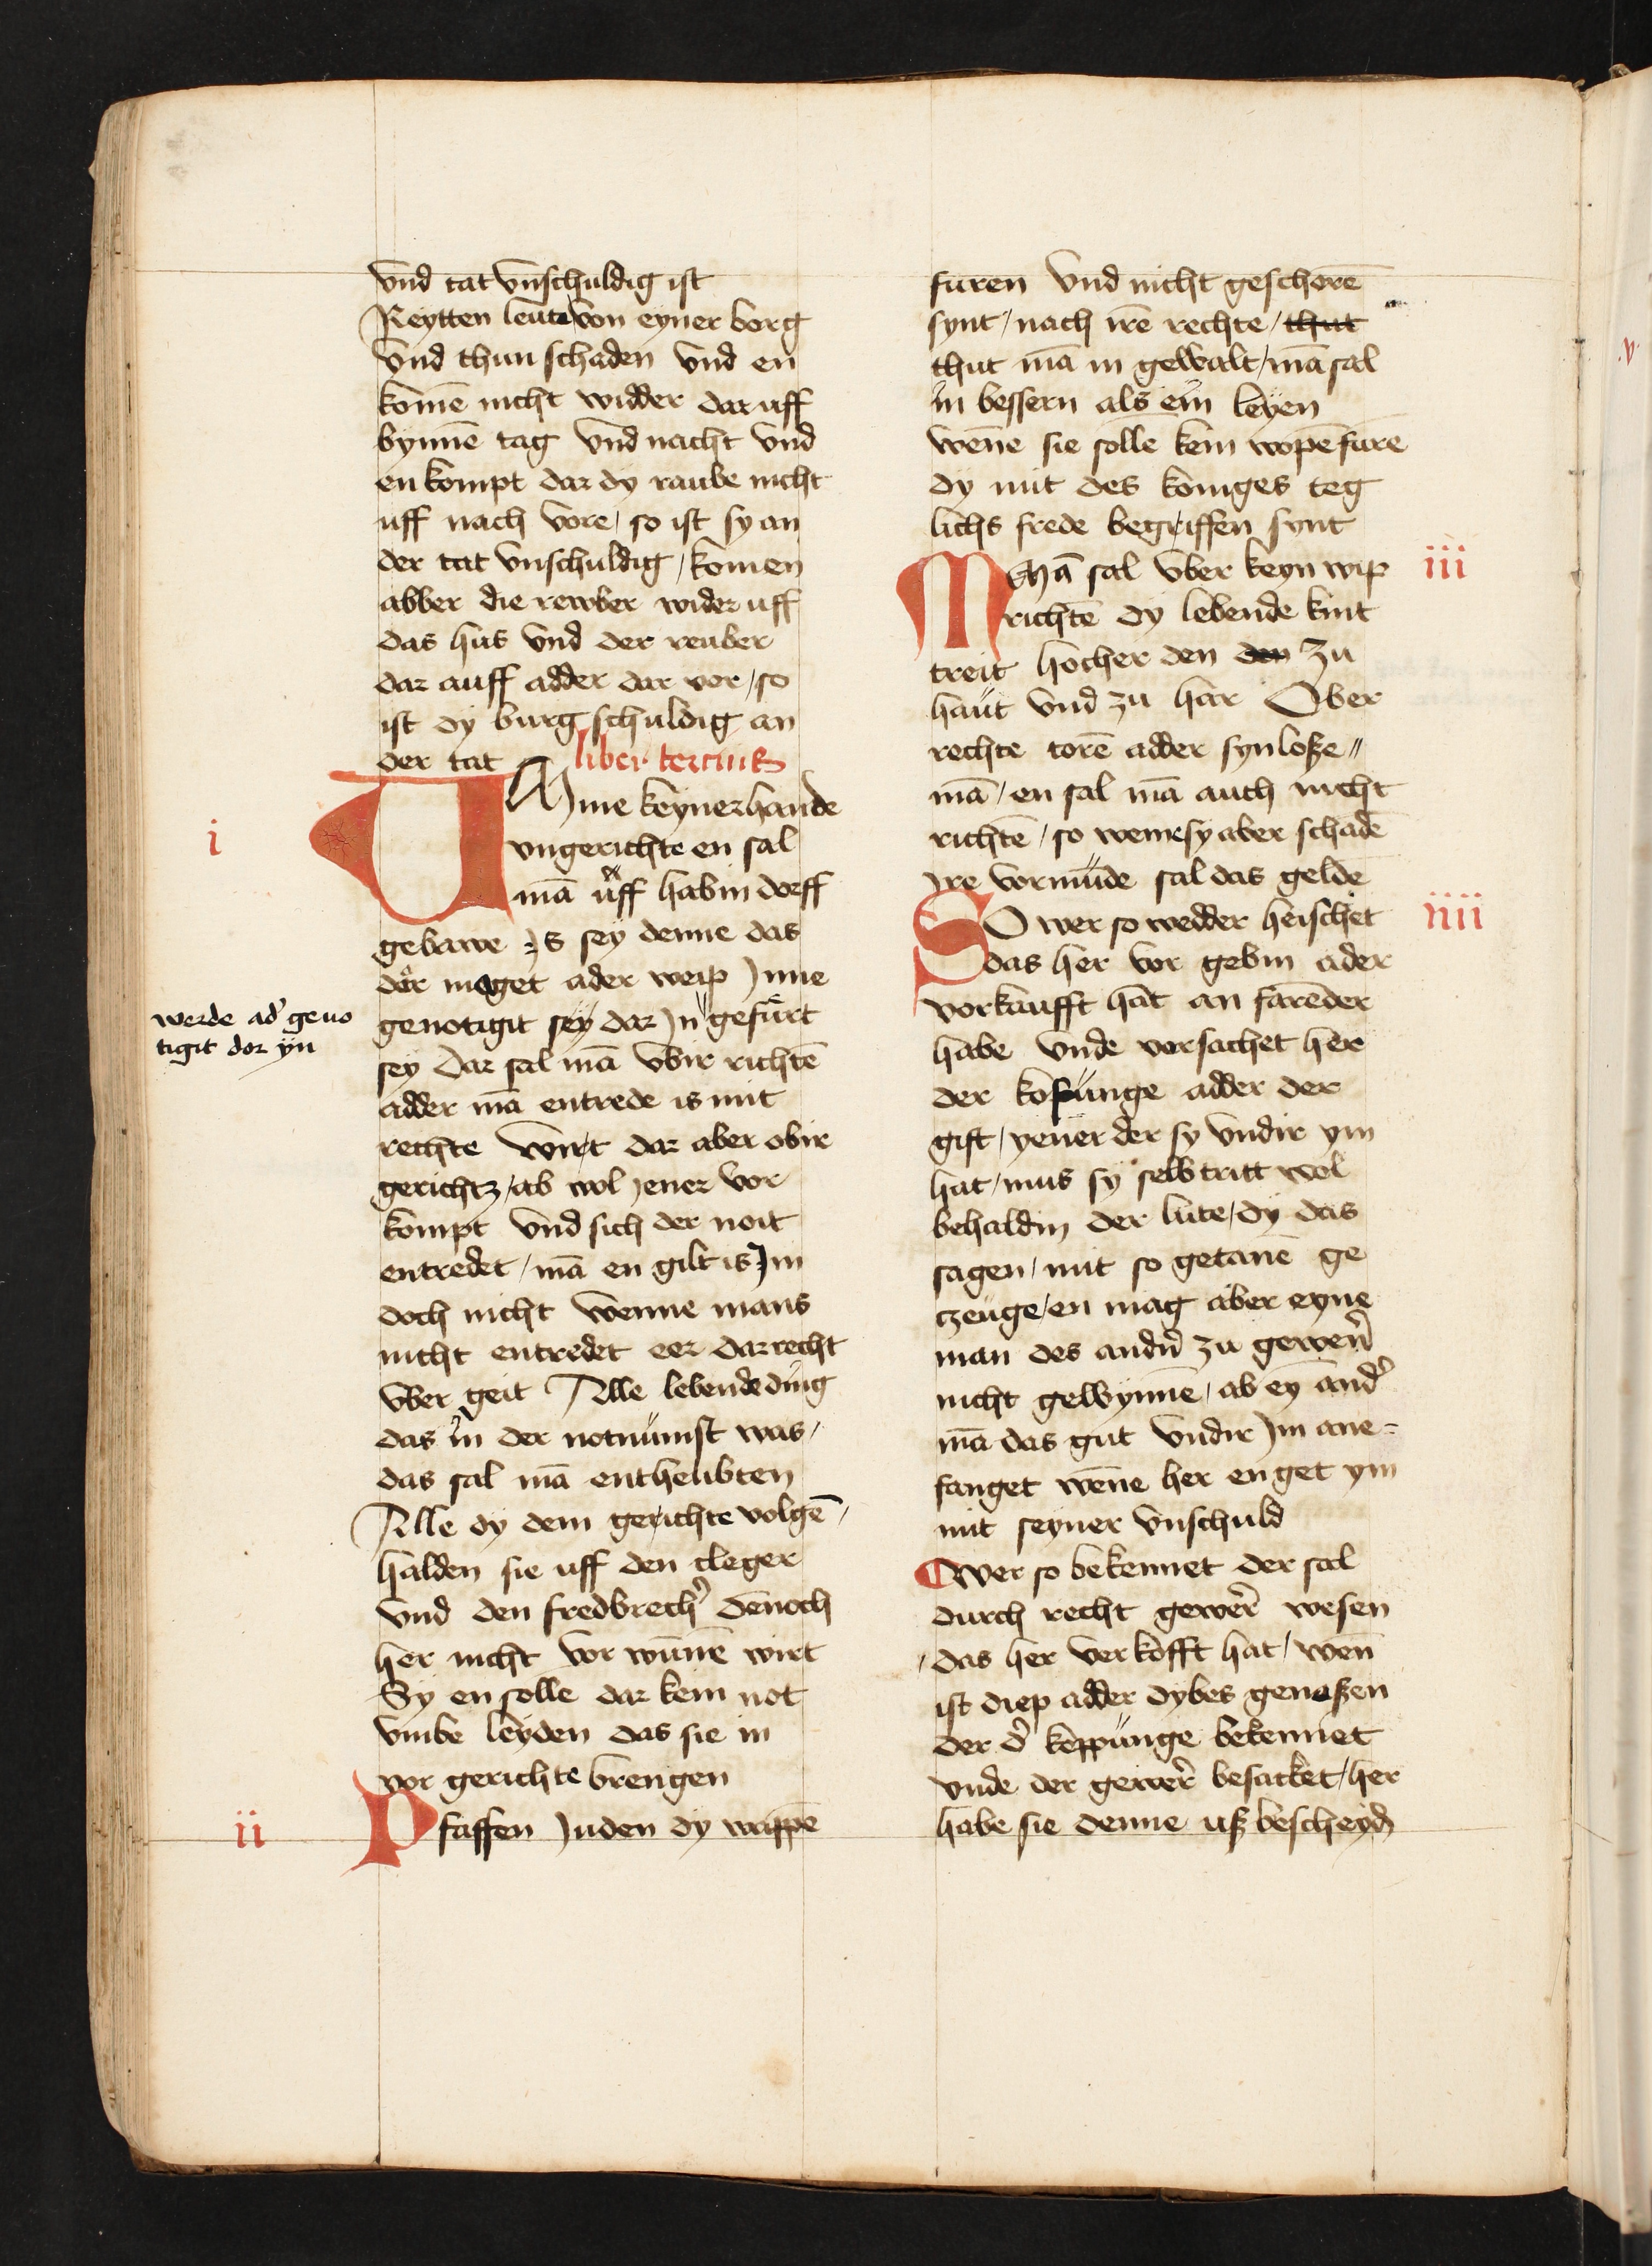 vnd tat vnschuldig ist
Reytten leute von eyner borg
vnd thun schaden vnd en
komē nicht widder dar uff
bynnē tag vnd nacht vnd
en kompt dar dy raube nicht
uff nach vore / so ist sy an
der tat vnschuldig / komen
abber die rewber wider uff
das hus vnd der reuber
dar auff adder dar vor / so
ist dy burg schuldig an
der tat liber tercius
i
UMme keynerhande
vngerichte en sal
mā uff habin dorff
gebawe Is sey denne das
der maget ader weip Inne
werde ad' geno
tigit dor yn
genotigit sey dar In gefurt
sey Dar sal mā vbir richtē
adder mā entrede is mit
rechte Wirt dar aber obir
gerichtz / ab wol Jener vor
kompt vnd sich der noit
entredet / mā en gilt is Im
doch nicht wenne mans
nicht entredet eer dar recht
vber geit Alle lebende ding
das in der notnunst was /
das sal mā entheubten
Alle dy dem gerichte volgē /
halden sie uff den cleger
vnd den fredbrech' dēnoch
her nicht vor wunnē wirt
Sy en solle dar kein not
vmbe leyden das sie in
vor gerichte brengen
ii
Pfaffen Juden dy wappē
furen vnd nicht geschorē
synt / nach irē rechte / thut
thut mā in gewalt / mā sal
in bessern als ein leyen
wēne sie solle kein wopē fure
dy mit des koniges teg
lichs frede begriffen synt
iii
MMā sal vber keyn wip
richtē dy lebende kint
treit hocher den den zu
haut vnd zu har Ober
rechte torē adder synloße //
mā / en sal mā auch nicht
richtē / so wemesy aber schadē
Ire vormude sal das geldē
iiii
SO wer so wedder heischet
das her vor gebin ader
vorkaufft hat an farēder
habe vnde versachet her
der kofunge adder der
gift / yener der sy vndir ym
hat / mus sy selb tritt wol
behaldin der lute / dy das
sagen / mit so getanē ge
czeuge / en mag aber eyne
man des andn̄ zu gewer̄
nicht gewynnē / ab ey and'
mā das gut vndir Im ane=
fanget wēne her enget ym
mit seyner vnschuld
Wer so bekennet der sal
durch recht gewer' wesen
/ das her verkofft hat / wen
ist diep adder dybes genaßen
der d' keppunge bekennet
vnde der gewer' besacket / her
habe sie denne uß bescheyd